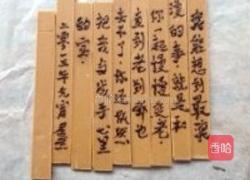 我能想到最浪
漫的事就是和
你一起慢慢变老
直到老到哪也
去不了你还依然
把我当成手心里
的宝
二零一五年元宵
香哈